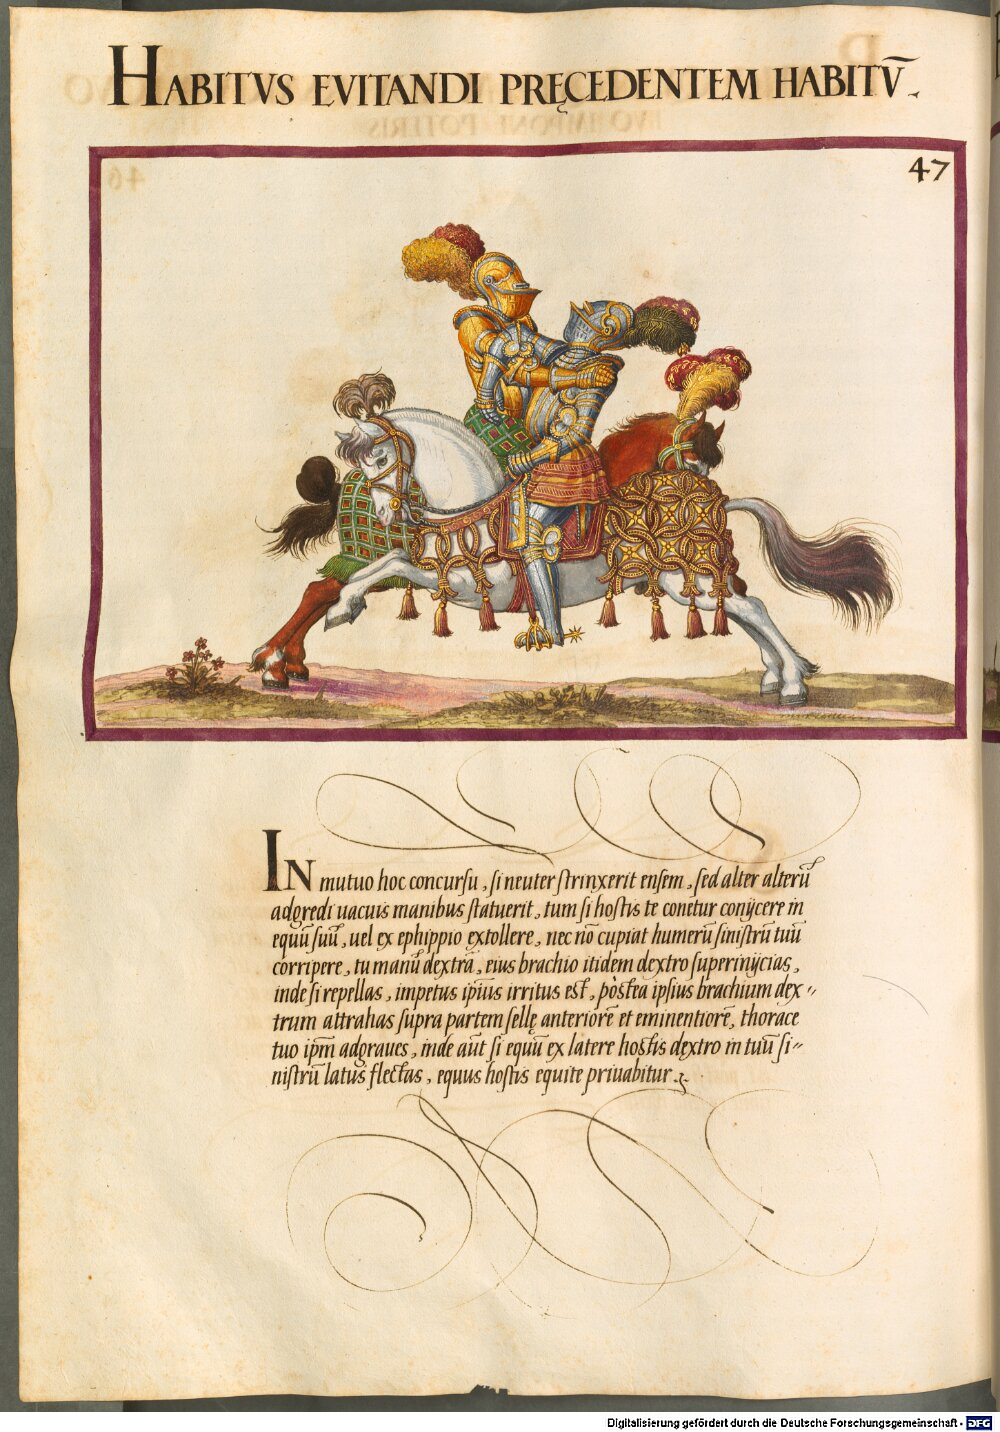 HABITVS EVITANDI PRĘCEDENTEM HABITV̄.
47
IN mutuo hoc concursu, si neuter strinxerit ensem, sed alter alterū
adgredi uacuis manibus statuerit, tum si hostis te conetur conijcere in
equū suū, uel ex ephippio extollere, nec nō cupiat humerū sinistrū tuū
corripere, tu manū dextrā, eius brachio itidem dextro superinijcias,
inde si repellas, impetus ip̄ius irritus est, postea ipsius brachium dex〃
trum attrahas supra partem sellę anteriorē et eminentiorē, thorace
tuo ip̄m adgraues, inde aūt si equū ex latere hostis dextro in tuū si〃
nistrū latus flectas, equus hostis equite priuabitur.
Digitalisierung gefördert durch die Deutsche Forschungsgemeinschaft - DFG